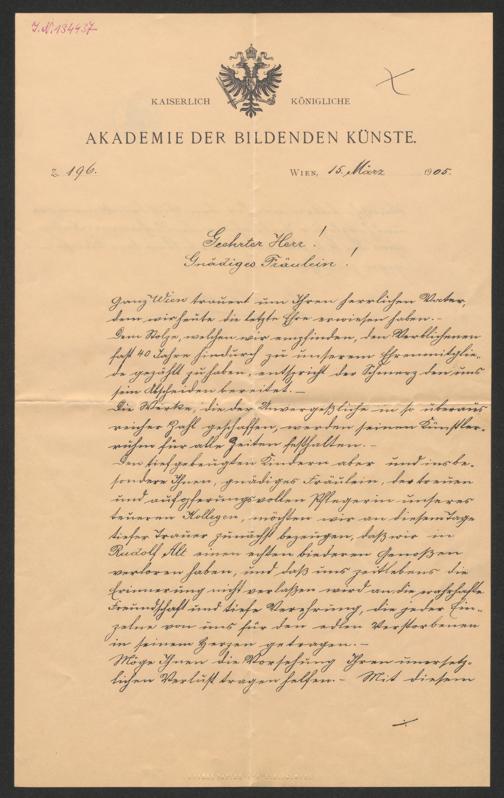 J.N. 134437
KAISERLICH KÖNIGLICHE
AKADEMIE DER BILDENDEN KÜNSTE.
Z. 196. WIEN, 15. März 1905.
Geehrter Herr!
Gnädiges Fräulein!
Ganz Wien trauert um Ihren herrlichen Vater,
dem wir heute die letzte Ehre erwiesen haben. –
Dem Stolze, welchen wir empfinden, den Verblichenen
fast 40 Jahre hindurch zu unserem Ehrenmitglie-
de gezählt zu haben, entspricht der Schmerz den uns
sein Abscheiden bereitet. –
Die Werke, die der Unvergeßliche in so überaus
reicher Zahl geschaffen, werden seinen Künstler-
ruhm für alle Zeiten festhalten. –
Den tiefgebeugten Kindern aber und insbe-
sondere Ihnen, gnädiges Fräulein, der treuen
und aufopferungsvollen Pflegerin unseres
teueren Kollegen, möchten wir an diesem Tage
tiefer Trauer zunächst bezeugen, daß wir in
Rudolf Alt einen echten biederen Genoßen
verloren haben, und daß uns zeitlebens die
Erinnerung nicht verlaßen wird an die wahrhafte
Freundschaft und tiefe Verehrung, die jeder Ein-
zelne von uns für den edlen Verstorbenen
in seinem Herzen getragen. –
Möge Ihnen die Vorsehung Ihren unersetz-
lichen Verlust tragen helfen. – Mit diesem